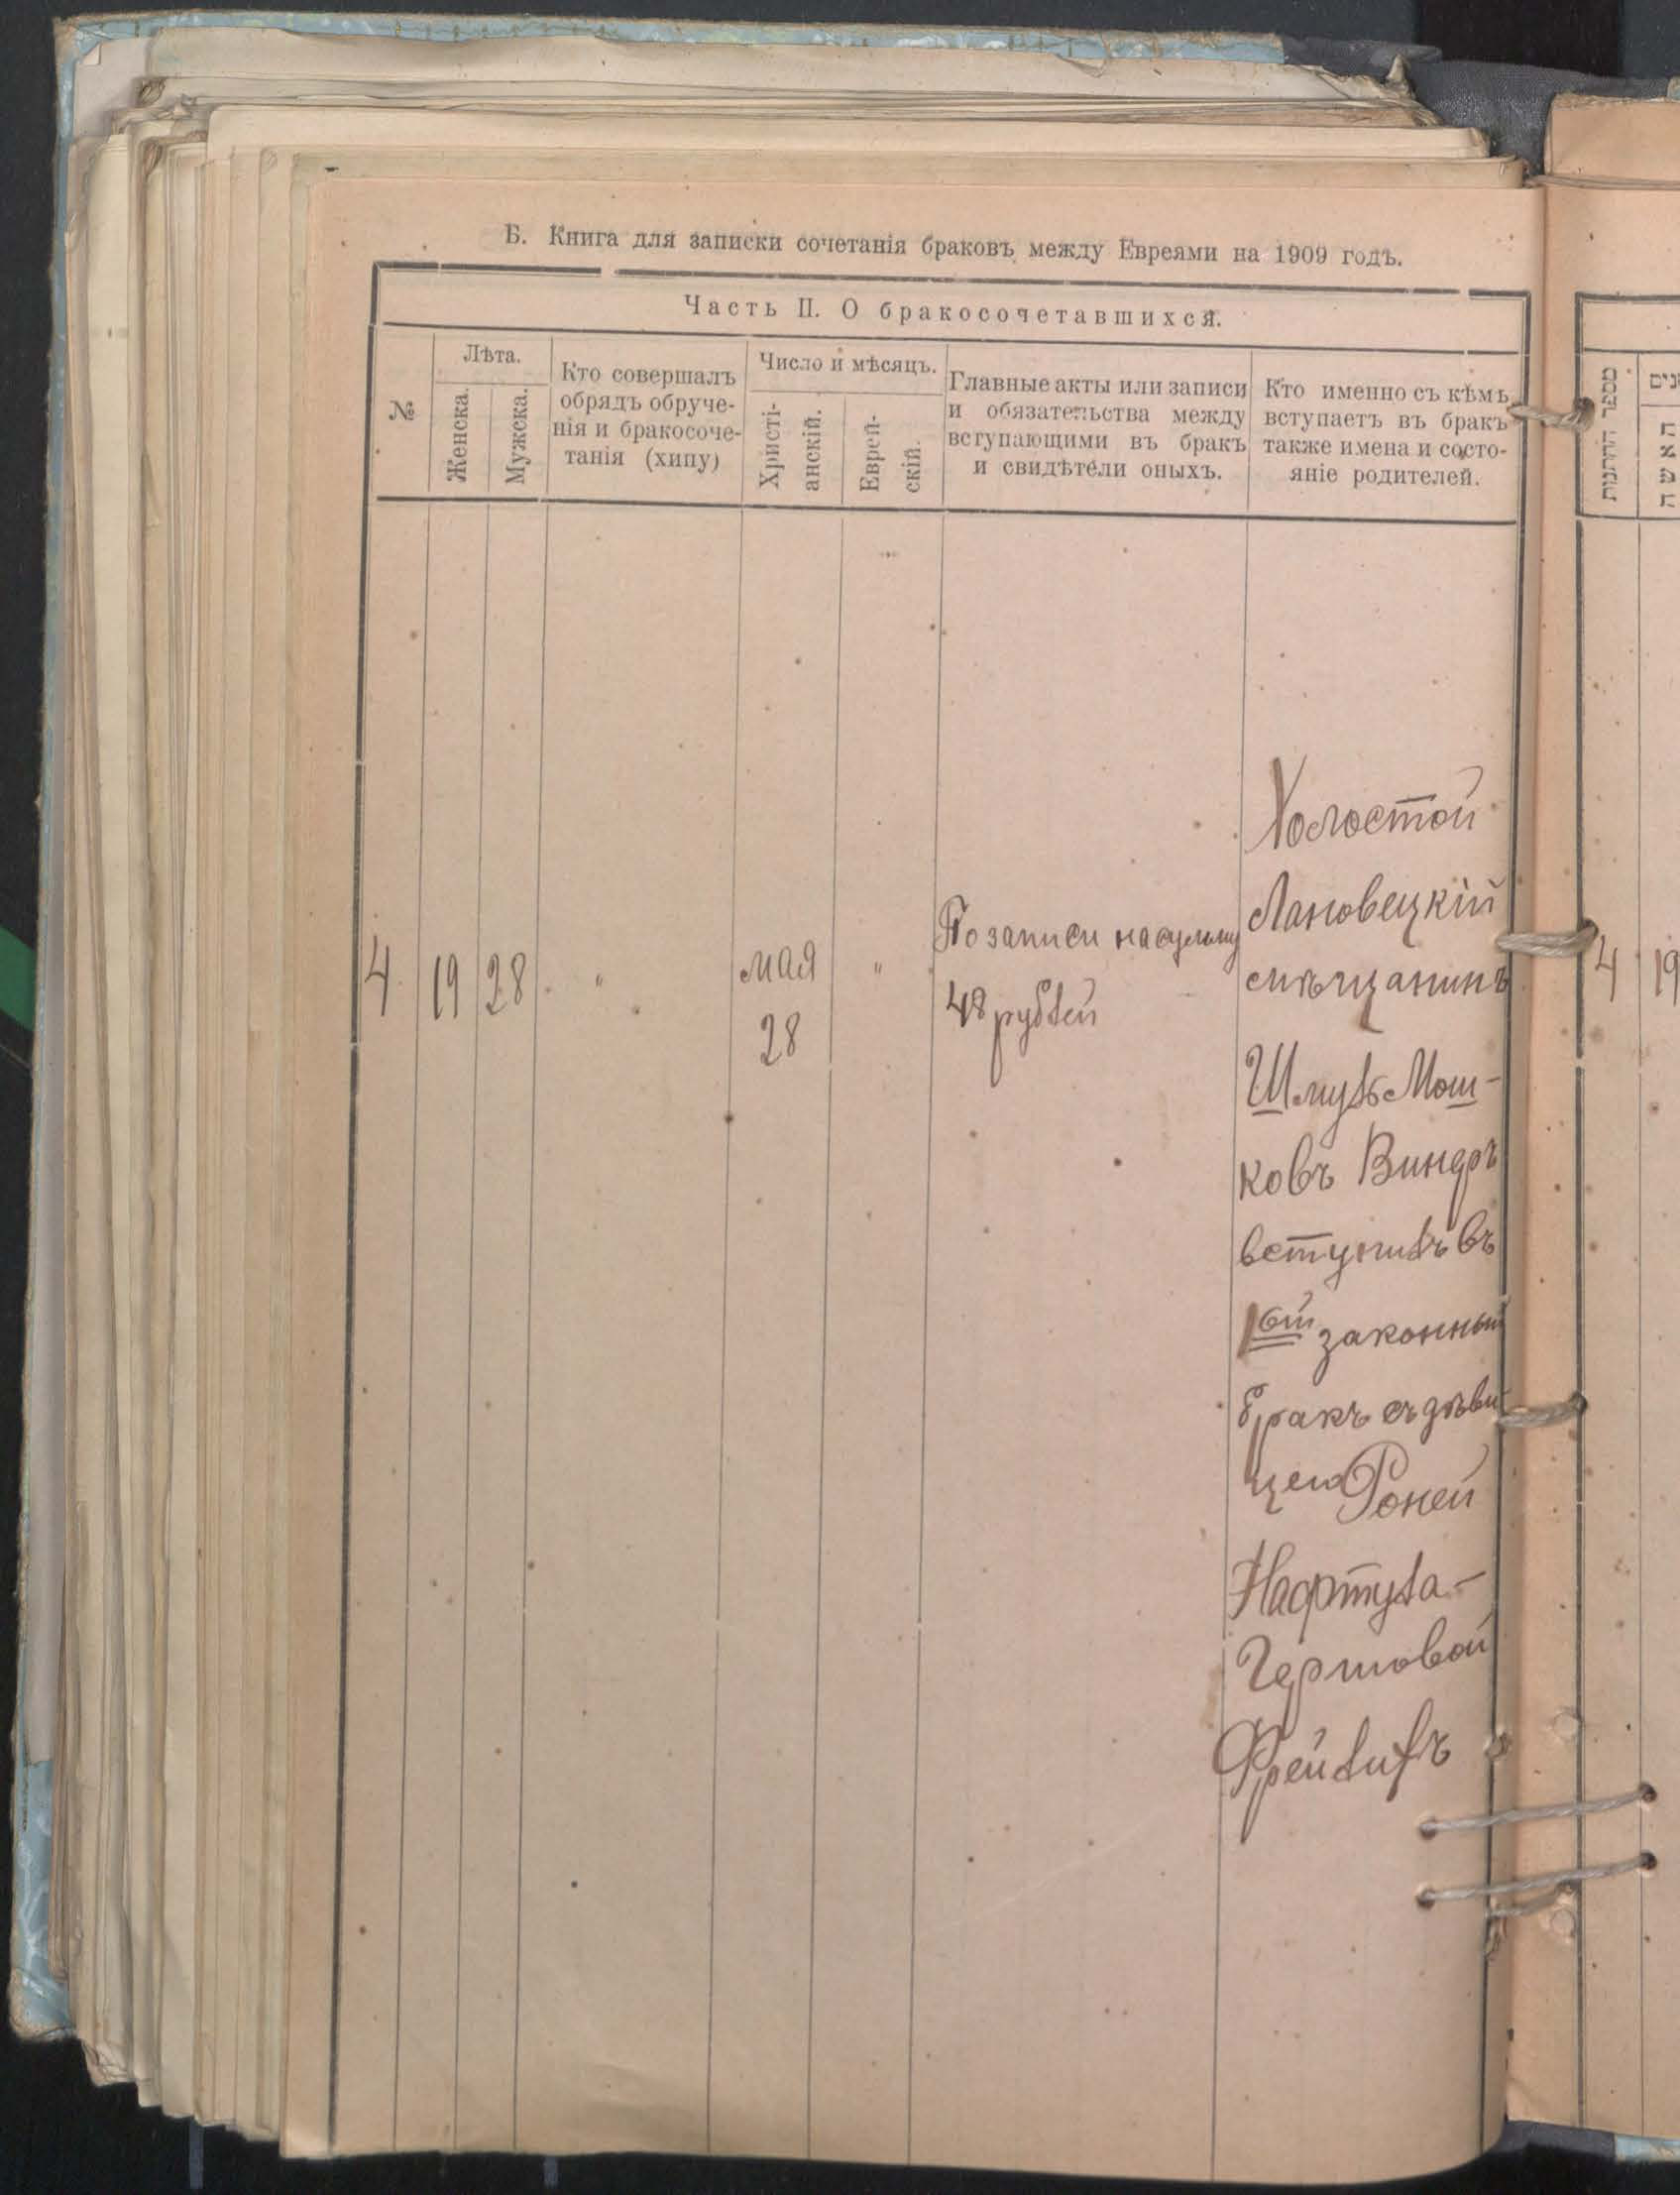 Б. Книга для записки сочетанія браковъ между Евреями на 1909 годъ.
Часть II. О бракосочетавшихся.
№
Лѣта.
Женска.
Мужска.
Кто совершалъ
обрядъ обруче-
нія и бракосоче-
танія (хипу)
Число и мѣсяцъ.
Христі-
анскій.
Еврей-
скій.
Главные акты или записи
и обязательства между
вступающими въ бракъ
и свидѣтели оныхъ.
Кто именно съ кѣмъ
вступаетъ въ бракъ
также имена и состо-
яніе родителей.
4
19
28
"
мая
28
"
По записи на сумму
48 рублей
Холостой
Лановецкій
мѣщанинъ
Шмуль Мош-
ковъ Виндръ
вступилъ въ
1ой законный
бракъ съ дѣви
цею Роней
Нафтула-
Гершовой
Фрейлихъ
מספר החתנות
האשה
4
19